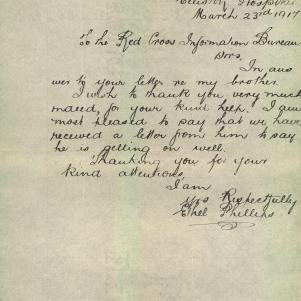 Hospital
March 23rd 1917
To the Red Cross Information Bureau
Sirs
In ans
wer to your letter re my brother.
I wish to thank you very much
indeed, for your kind help. I am
most pleased to say that we have
received a letter from him to say
he is getting on well.
Thanking you for your
kind attentions,
I am
Yrs Respectfully
Ethel Phillips